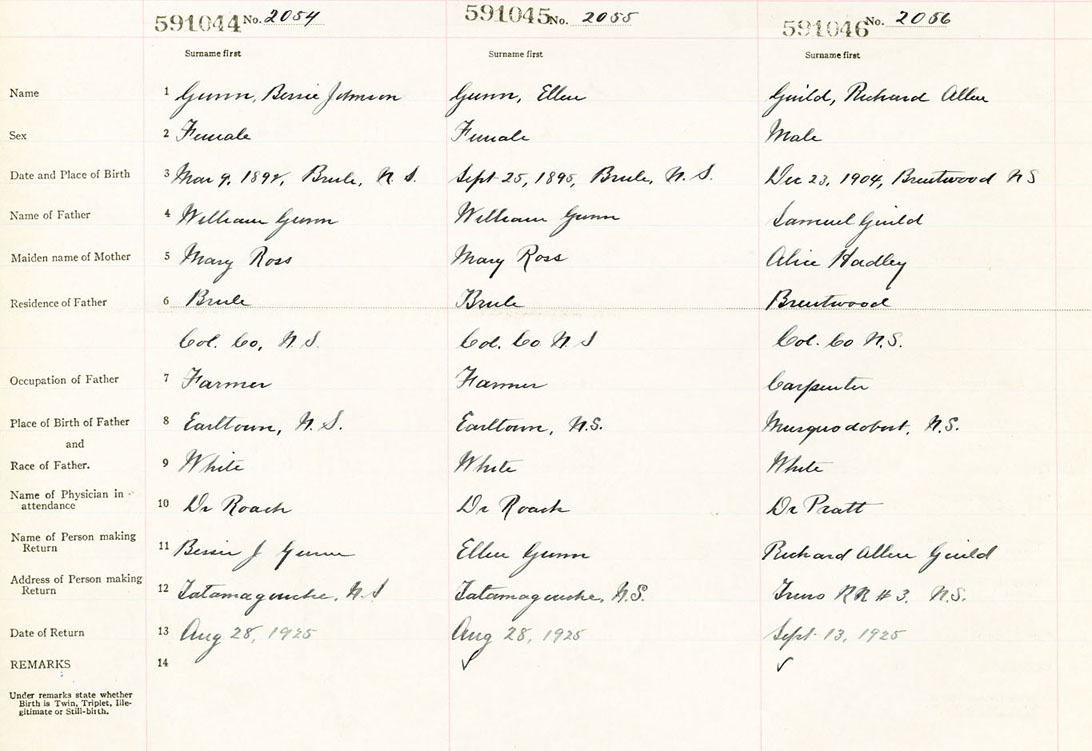 591044 No. 2054 591045 No. 2055 591046 No. 2056
Surname first Surname first Surname first
Name 1 Gunn, Bessie Johnson Gunn, Ellen Guild, Richard Allen
Sex 2 Female Female Male
Date and Place of Birth 3 Mar 9, Brule, N.S. Sept 25, 1895, Brule, N.S. Dec 23, 1904, Brentwood NS
Name of Father 4 William Gunn William Gunn Samuel Guild
Maiden name of Mother 5 Mary Ross Mary Ross Alice Hadley
Residence of Father 6 Brule Brule Brentwood
Col. Co, N.S. Col. Co N S Col. Co N.S.
Occupation of Father 7 Farmer Farmer Carpenter
Place of Birth of Father 8 Earltown, N.S. Earltown, N.S. Musquodobort, N.S.
and
Race of Father. 9 White White White
Name of Physician in attendance 10 Dr Roach Dr Roach Dr Pratt
Name of Person making Return 11 Bessie J Gunn Ellen Gunn Richard Allen Guild
Address of Person making Return 12 Tatamagouche, N.S Tatamagouche, N.S. Truro RR # 3, N.S.
Date of Return 13 Aug 28, 1925 Aug 28, 1925 Sept 13, 1925
REMARKS 14 ✓ ✓
Under remarks state whether
Birth is Twin, Triplet, Ille-
gitimate or Still-birth.